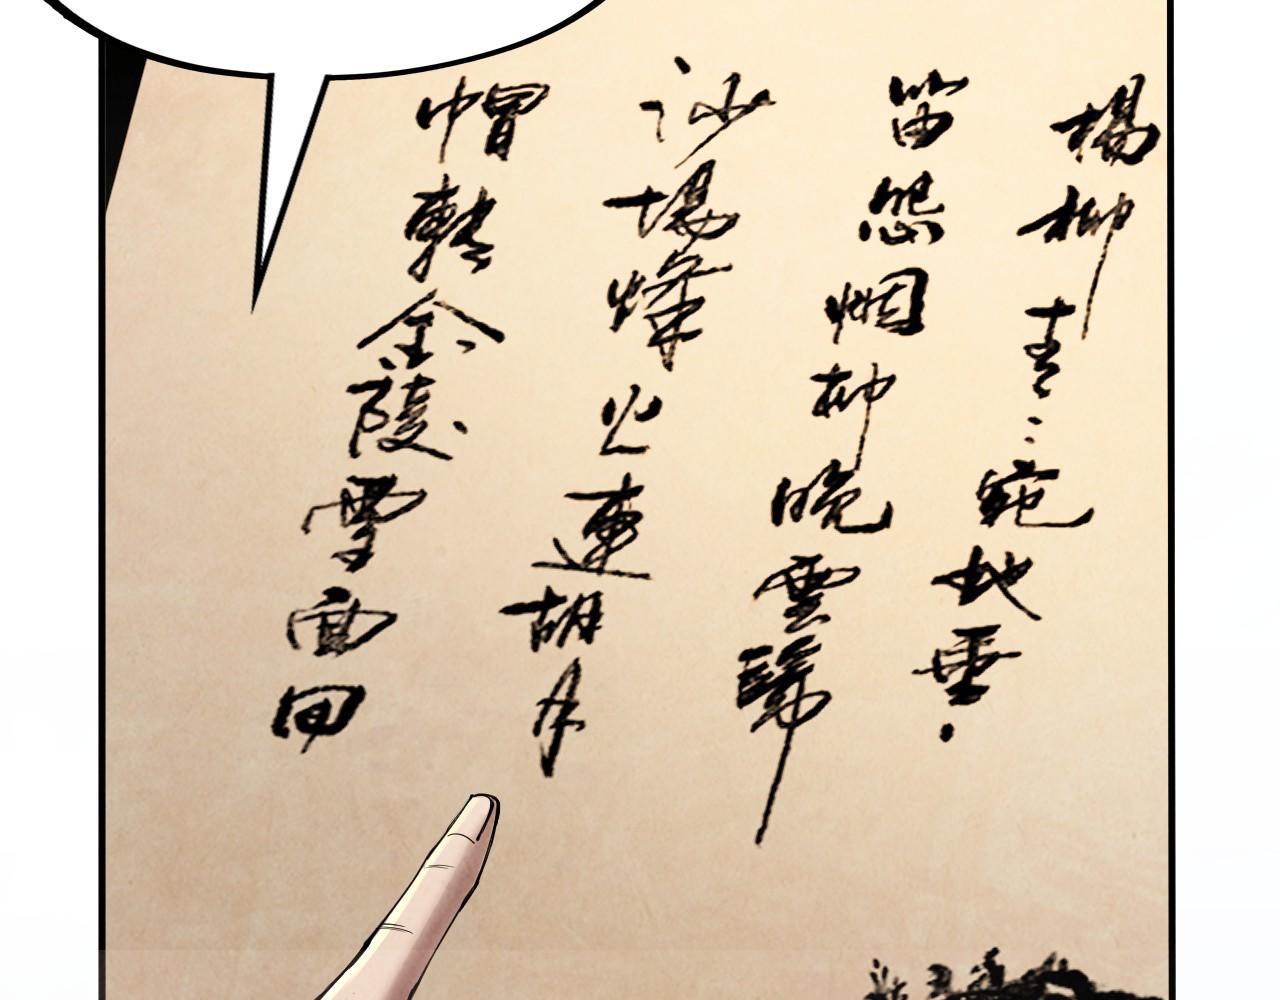 楊柳青〻宛地垂
笛怨烟柳晚雲歸
沙場燦火連胡月
帽輕金陵雪面回